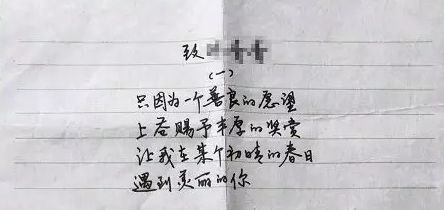 致
（一）
只因为一个善良的愿望
上苍赐予丰厚的奖赏
让我在某个初晴的春日
遇到美丽的你